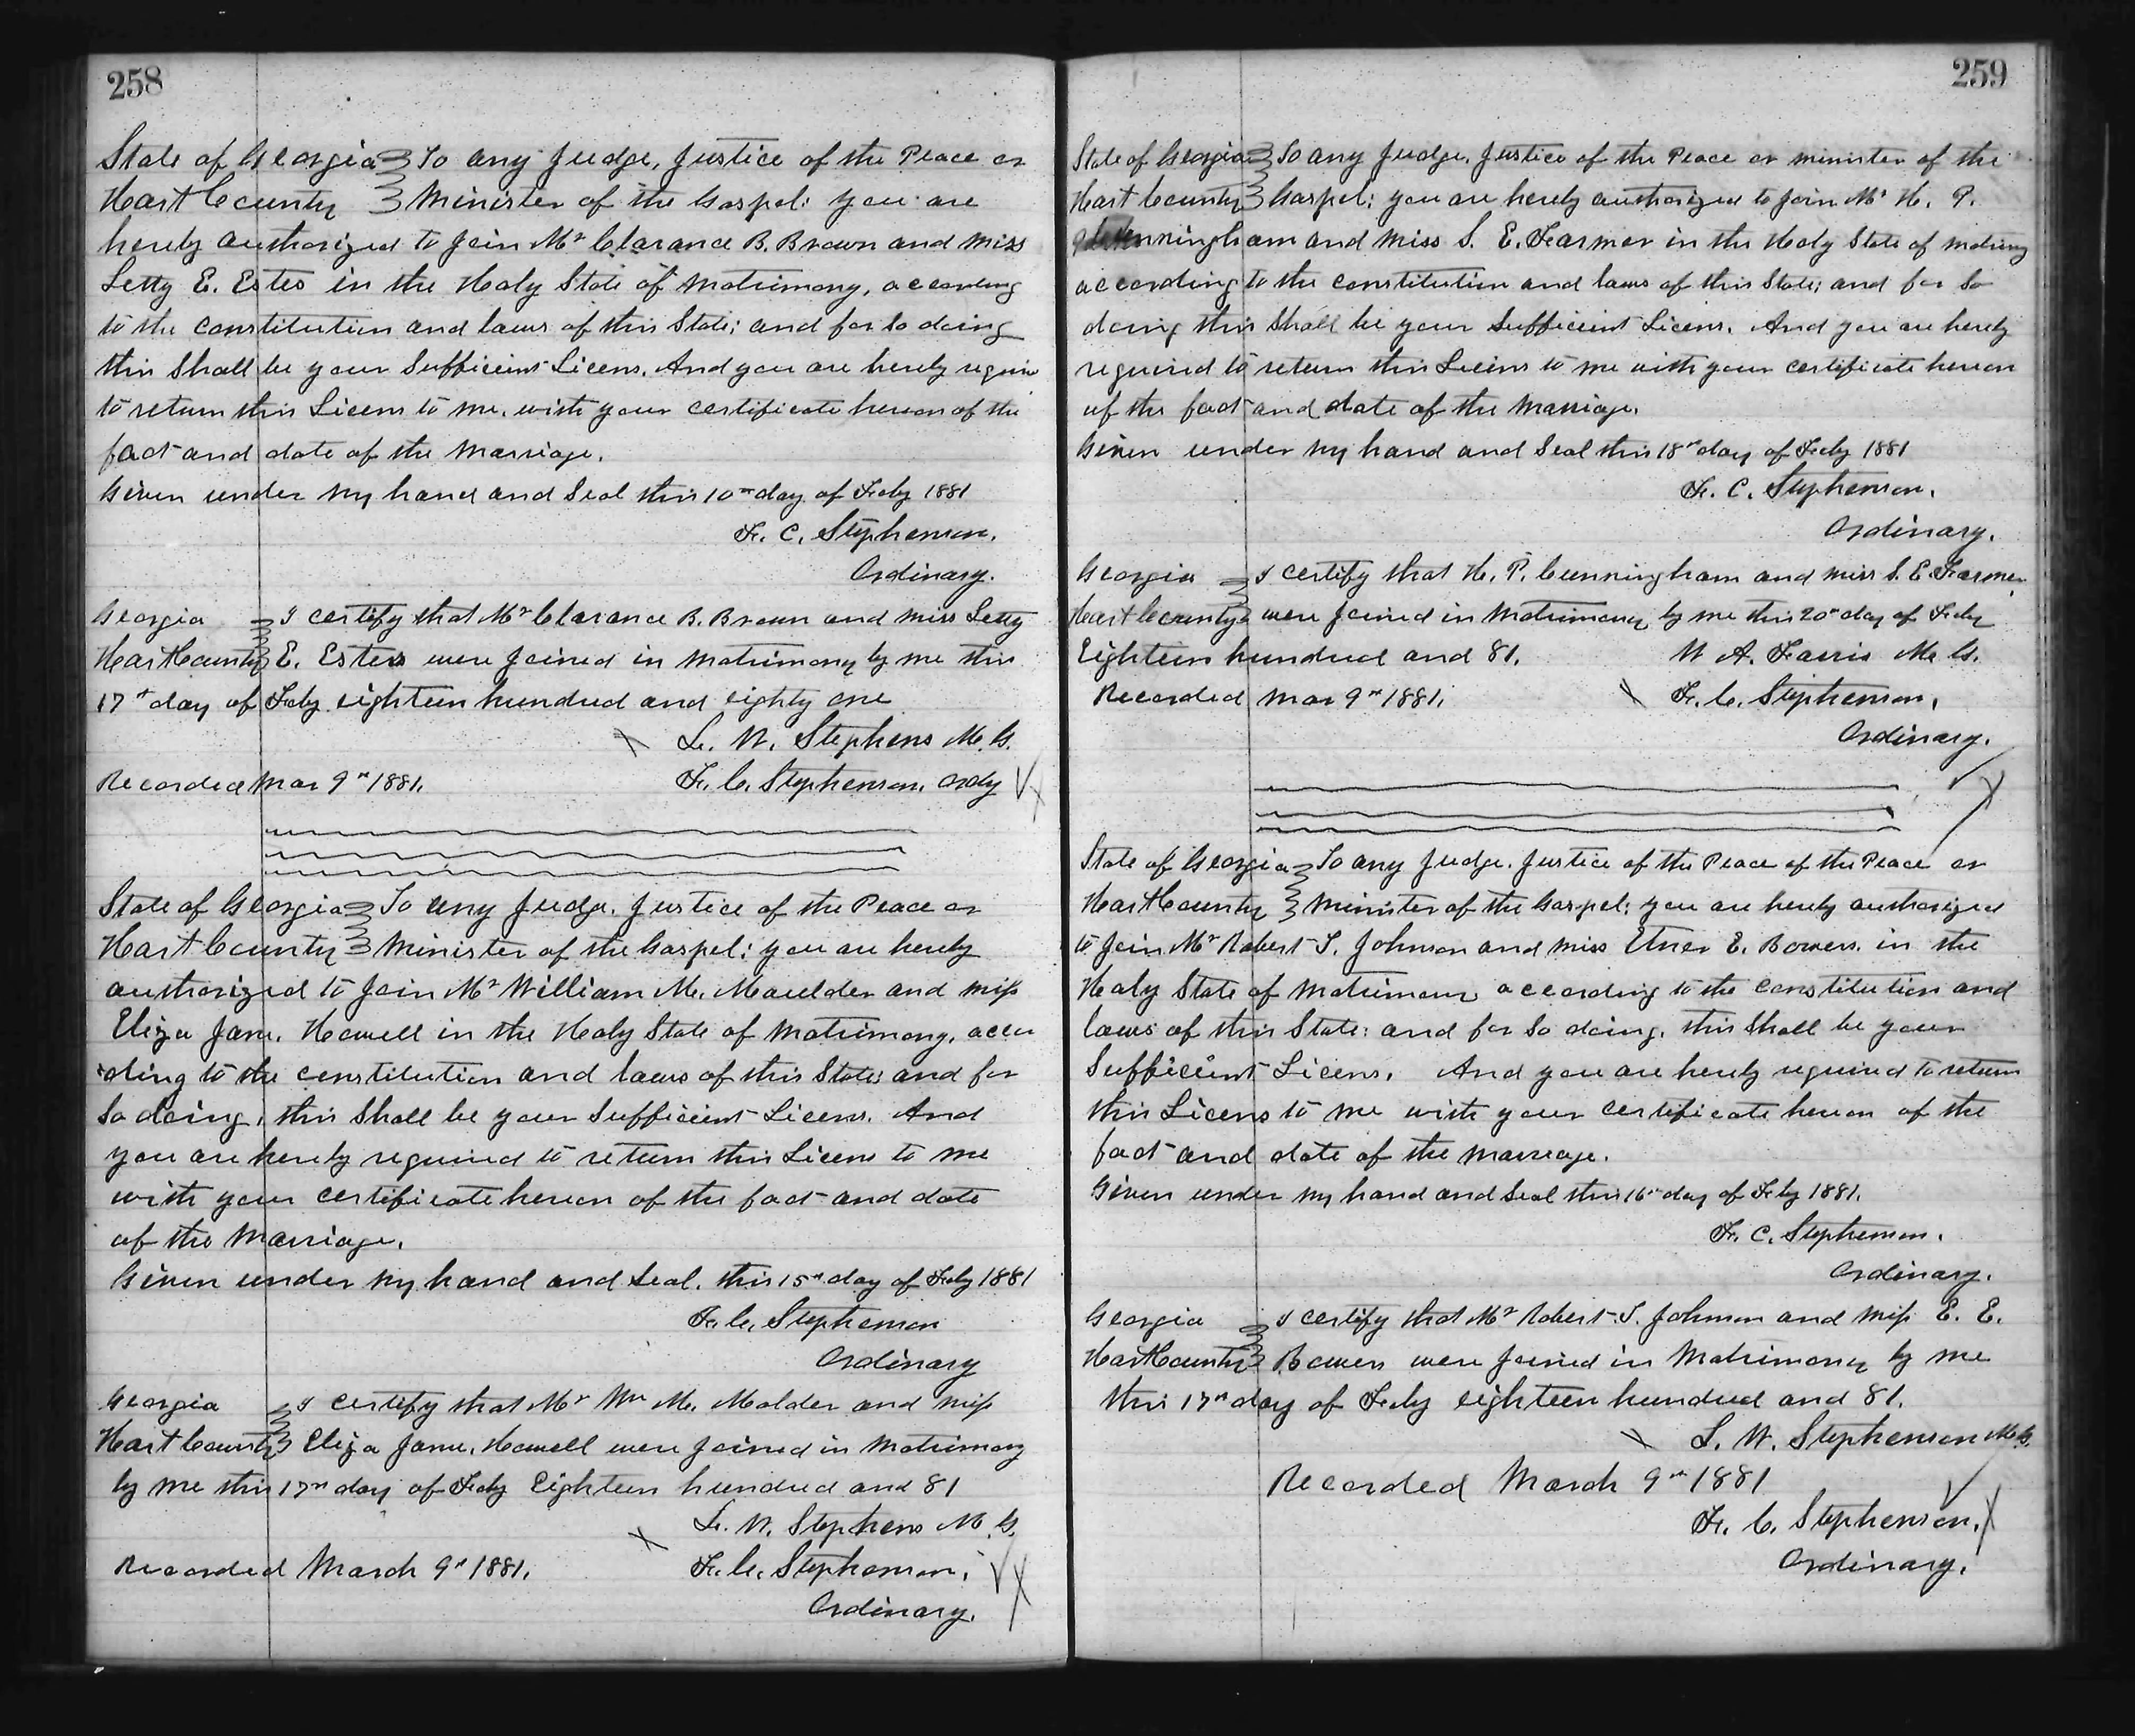 258
State of Georgia To any Judge, Justice of the Peace or
Hart County Minister of the Gospel: you are
hereby authorized to Join Mr Clarance B. Brown and Miss
Letty E. Estes in the Holy State of Matrimony, according
to the constitution and laws of this State; and for so doing
this Shall be your Sufficient Licens. And you are hereby requir
to return this Licens to me, with your certificate hereon of the
fact and date of the Marriage.
Given under my hand and Seal this 10th day of Feby 1881
F. C. Stephenson.
Ordinary.
Georgia I certify that Mr Clarance B. Brown and Miss Letty
Hart County E. Estes were Joined in Matrimony by me this
17th day of Feby eighteen hundred and eighty one
L. W. Stephens M. G.
Recorded Mar 9th 1881. F. C. Stephenson. Ordy
State of Georgia To any Judge, Justice of the Peace or
Hart County Minister of the Gospel: you are hereby
authorized to Join Mr William M. Maulder and Miss
Eliza Jane. Howell in the Holy State of Matrimony, accor
ding to the constitution and laws of this State; and for
So doing, this Shall be your Sufficient Licens. And
you are hereby required to return this Licens to me
with your certificate hereon of the fact and date
of the Marriage.
Given under my hand and Seal. this 15th day of Feby 1881
F. C. Stephenson
Ordinary
Georgia I certify that Mr Wm M. Malder and Miss
Hart County Eliza Jane. Howell were Joined in Matrimony
by me this 17th day of Feby Eighteen hundred and 81
L. W. Stephens M. G.
Recorded March 9th 1881. F. C. Stephenson,
Ordinary.
259
State of Georgia To any Judge, Justice of the Peace or minister of the
Hart County Gospel; you are hereby authorized to Join Mr H. P.
Cunningham and Miss S. E. Farmer in the Holy State of matrimony
according to the constitution and laws of this State; and for So
doing this Shall be your Sufficient Licens. And you are hereby
required to return this Licens to me with your certificate hereon
of the fact and date of the Marriage.
Given under my hand and Seal this 18th day of Feby 1881
F. C. Stephenson.
Ordinary.
Georgia I certify that H. P. Cunningham and Miss S. E. Farmer
Hart County were Joined in Matrimony by me this 20th day of Feby
Eighteen hundred and 81. W A. Farris M. G.
Recorded Mar 9th 1881. F. C. Stephenson,
Ordinary.
State of Georgia To any Judge, Justice of the Peace of the Peace or
Hart County Minister of the Gospel; you are hereby authorized
to Join Mr Robert T. Johnson and Miss E. Bowers. in the
Holy State of Matrimony according to the constitution and
laws of this State: and for So doing, this Shall be your
Sufficient Licens. And you are hereby required to return
this Licens to me with your certificate hereon of the
fact and date of the marriage.
Given under my hand and Seal this 16th day of Feby 1881.
F. C. Stephenson.
Ordinary.
Georgia I certify that Mr Robert T. Johnson and Miss E. E.
Hart County Bowers were Joined in Matrimony by me
this 17th day of Feby eighteen hundred and 81.
L. W. Stephenson M. G.
Recorded March 9th 1881
F. C. Stephenson,
Ordinary.